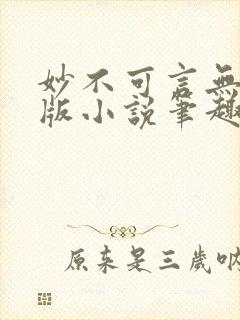 妙不可言無
版小說筆趣
原来是三歲呐